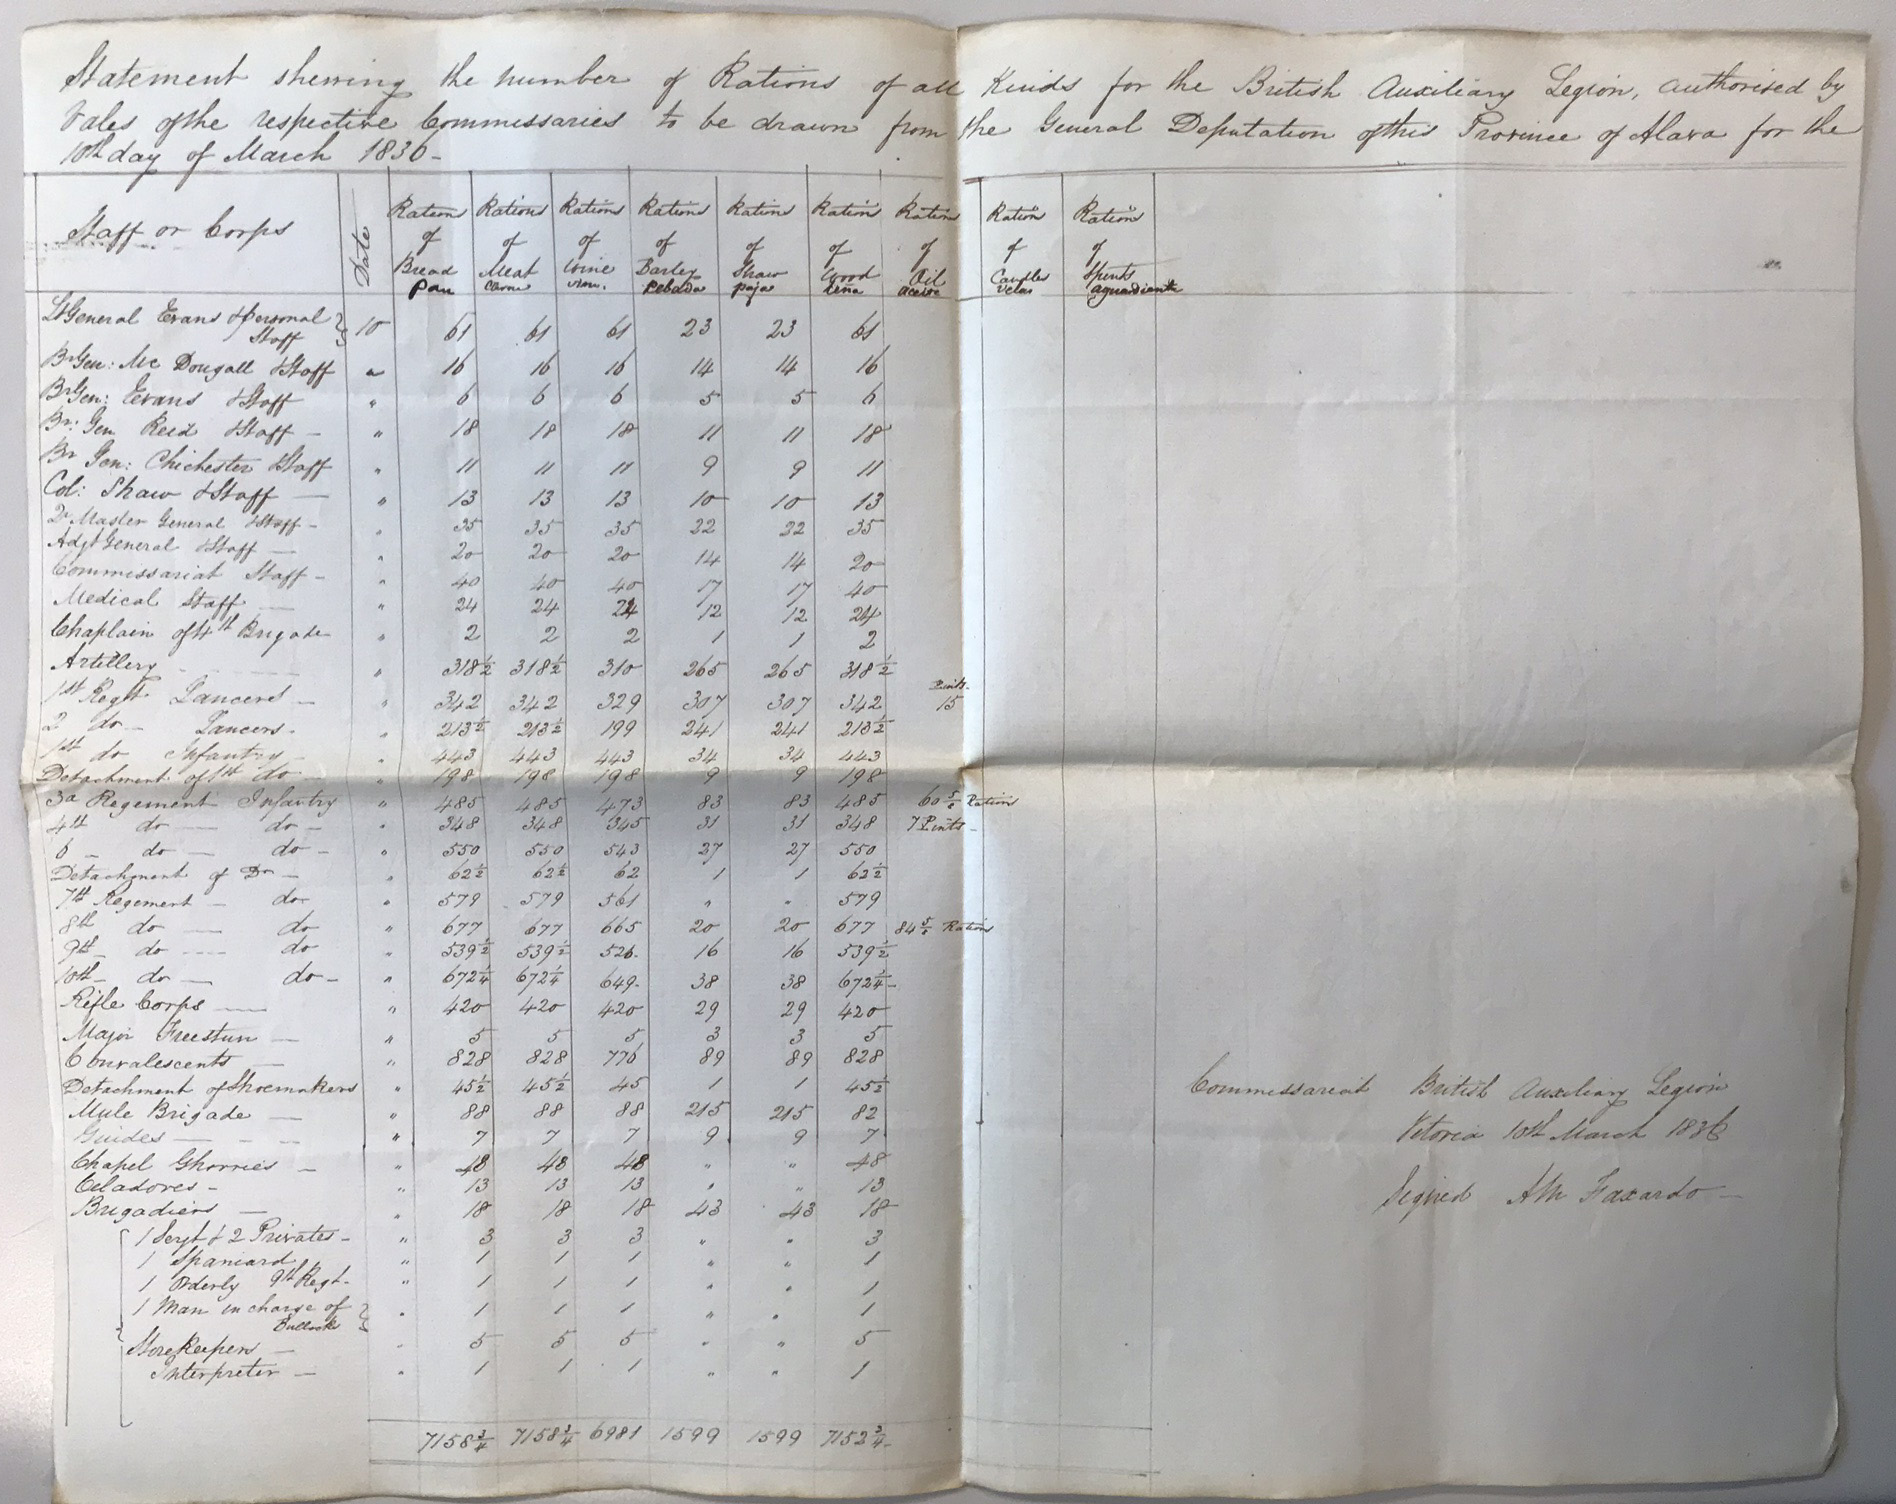 Statement shewing the number of Rations of all Kinds for the British Auxiliary Legion, authorised by
Vales of the respective Commissaries to be drawn from the General Deputation of this Province of Alava for the
10th day of March 1836-
Staff or Corps Date Rations of Bread Pan Rations of Meat carne Rations of Wine vino. Rations of Barley Cebada Rations of Straw paja Rations of Wood Leña Rations of Oil aceite Rations of Candles velas Rations of Spirits aguardiente
Lt General Evans & personal Staff 10 61 61 61 23 23 61
Br Gen: Mc Dougall & Staff " 16 16 16 14 14 16
Br Gen: Evans & Staff " 6 6 6 5 5 6
Br: Gen Reid & Staff - " 18 18 18 11 11 18
Br Gen: Chichester & Staff " 11 11 11 9 9 11
Col: Shaw & Staff - " 13 13 13 10 10 13
Qr Master General & Staff - " 35 35 35 22 22 35
Adjt General & Staff - " 20 20 20 14 14 20
Commissariat Staff - " 40 40 40 17 17 40
Medical Staff - " 24 24 24 12 12 24
Chaplain of 4th Brigade " 2 2 2 1 1 2
Artillery - " 318½ 318½ 310 265 265 318½
1st Regt Lancers - " 342 342 329 307 307 342 Pints. 15
2 do - Lancers - " 213½ 213½ 199 241 241 213½
1st do Infantry - " 443 443 443 34 34 443
Detachment of 1st do - " 198 198 198 9 9 198
3d Regement Infantry " 485 485 473 83 83 485 60 5/8 Rations
4th do - do - " 348 348 345 31 31 348 7 Pints -
6 - do - do - " 550 550 543 27 27 550
Detachment of Do - " 62½ 62½ 62 1 1 62½
7th Regement - do - " 579 579 561 " " 579
8th do - do " 677 677 665 20 20 677 84 5/8 Rations
9th do - do " 539½ 539½ 526. 16 16 539½
10th - do - do - " 672¼ 672¼ 649. 38 38 672¼ -
Rifle Corps - " 420 420 420 29 29 420
Major Freestun - " 5 5 5 3 3 5
Convalescents - " 828 828 776 89 89 828
Detachment of Shoemakers " 45½ 45½ 45 1 1 45½
Mule Brigade - " 88 88 88 215 215 82
Guides - " 7 7 7 9 9 7
Chapel Ghorries - " 48 48 48 " " 48
Celadores - " 13 13 13 " " 13
Brigadiers - " 18 18 18 43 43 18
1 Serjt & 2 Privates - " 3 3 3 " " 3
1 Spaniard " 1 1 1 " " 1
1 Orderly 9th Regt. " 1 1 1 " " 1
1 Man in charge of Bullocks " 1 1 1 " " 1
Storekeepers - " 5 5 5 " " 5
Interpreter - " 1 1 1 " " 1
7158¾ 7158¾ 6981 1599 1599 7152¾ -
Commissariat British Auxiliary Legion
Vitoria 10th March 1836
Signed AM Faxardo -